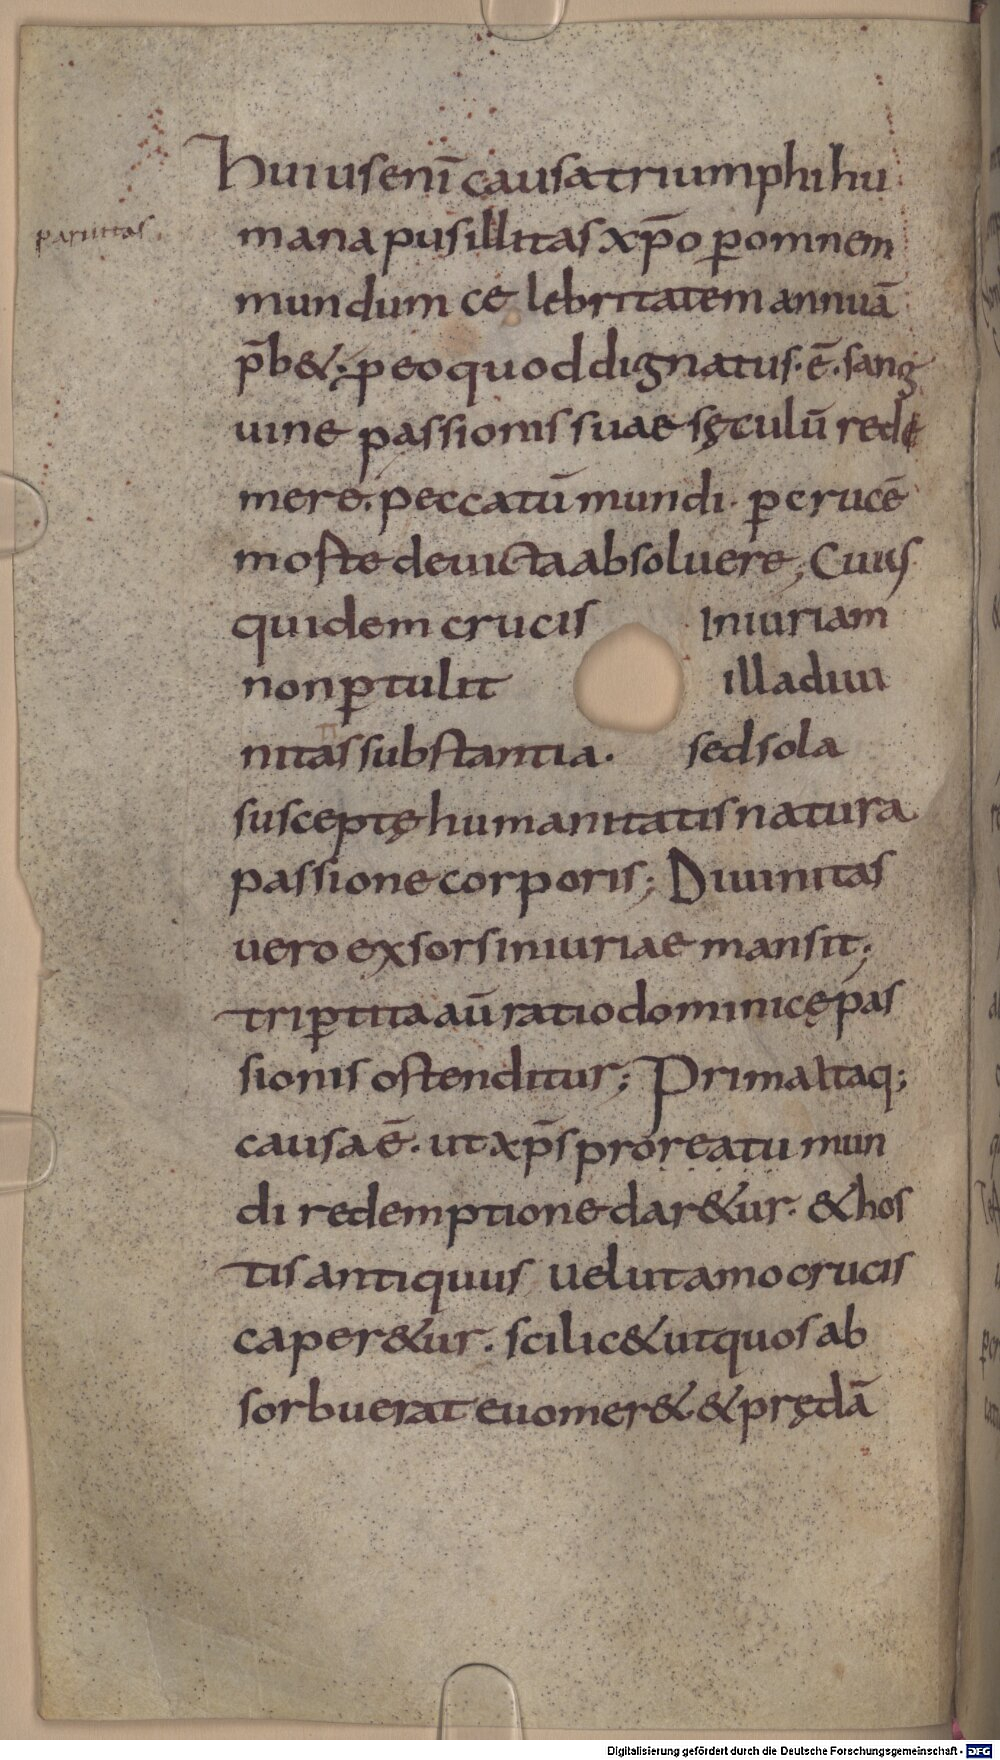 Huius enī causa triumphi hu
paruitas.
mana pusillitas xp̄o ꝑ omnem
mundum ce lebritatem annuā
p̄b&; ꝓ eo quod dignatus· ē· sang
uine passionis suae sęculū rede
mere. peccatū mundi· ꝑ crucē
morte deuicta absoluere; Cuius
quidem crucis iniuriam
non ꝑtulit illa diui
nitas substantia· sed sola
susceptę humanitatis natura
passione corporis; Diuinitas
uero exsors iniuriae mansit;
triꝑtita aū ratio dominicę pas
sionis ostenditur; Prima itaq;
causa ē· ut xp̄s pro reatu mun
di redemptione dar&ur· & hos
tis antiquus uelut amo crucis
caper&ur· scilic& ut quos ab
sorbuerat euomer& & prędā
Digitalisierung gefördert durch die Deutsche Forschungsgemeinschaft - DFG